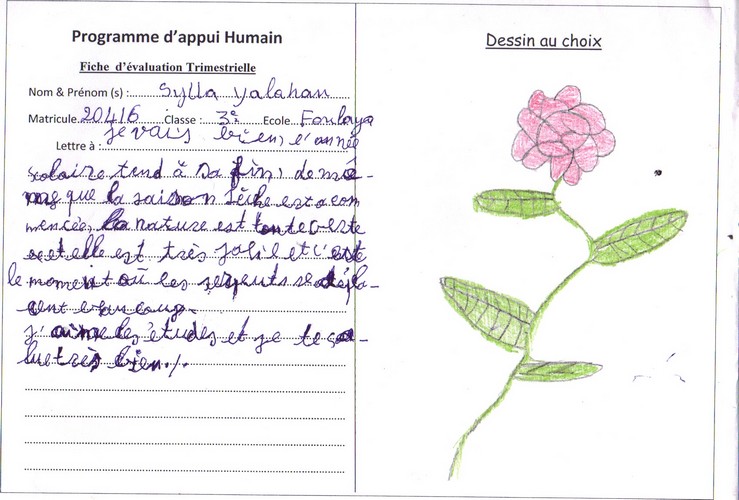 Programme d'appui Humain
Fiche d'évaluation Trimestrielle
Nom & Prénom (s) : Sylla yalahan
Matricule 20416 Classe : 3e Ecole Foulaya
Lettre à : je vais bien, l'année
scolaire tend à sa fin, de mê-
me que la saison sèche est a com
mencée, la nature est toute verte
et elle est très joli et c'est
le moment où les serpents se dépla-
cent beaucoup.
j'aime les études et je te sa-
lue très bien./.
Dessin au choix